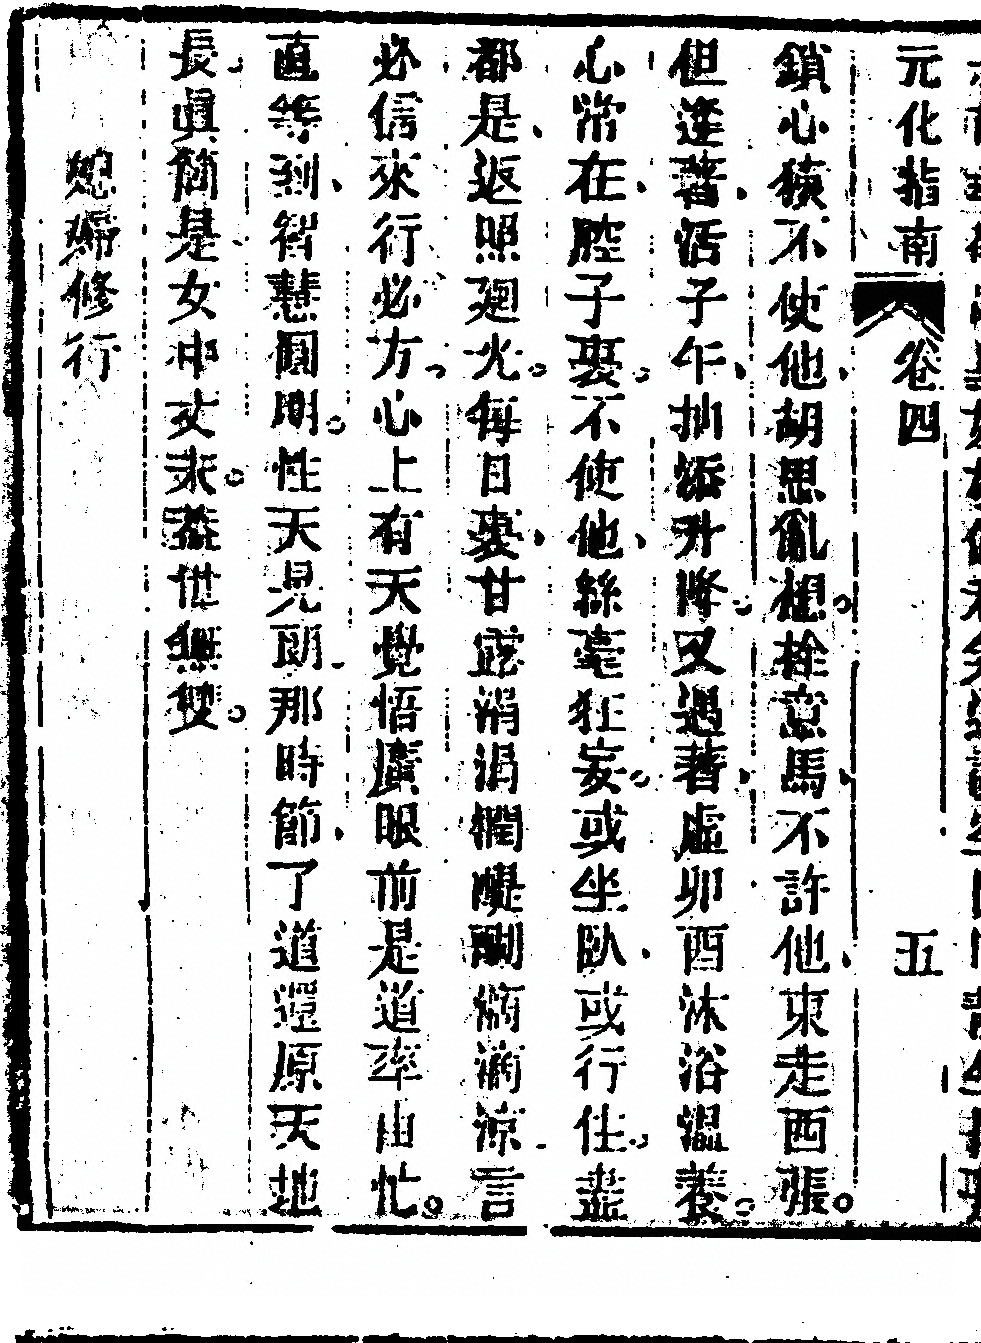 元化指南 卷四 五
鎖心猿不使他胡思亂想。栓意馬不許他東走西張。
但逢著活子午抽添升降。又遇著虛卯酉沐浴溫養。
心常在腔子裏不使他絲毫狂妄。或坐臥或行住盡
都是返照廻光。每日裏甘露涓涓潤醍醐滴滴涼。言
必信來行必方。心上有天覺悟廣眼前是道率由忙。
直等到智慧圓明。性天晃朗那時節了道還原天地
長眞箇是女中丈夫。蓋世無雙。
媳婦修行